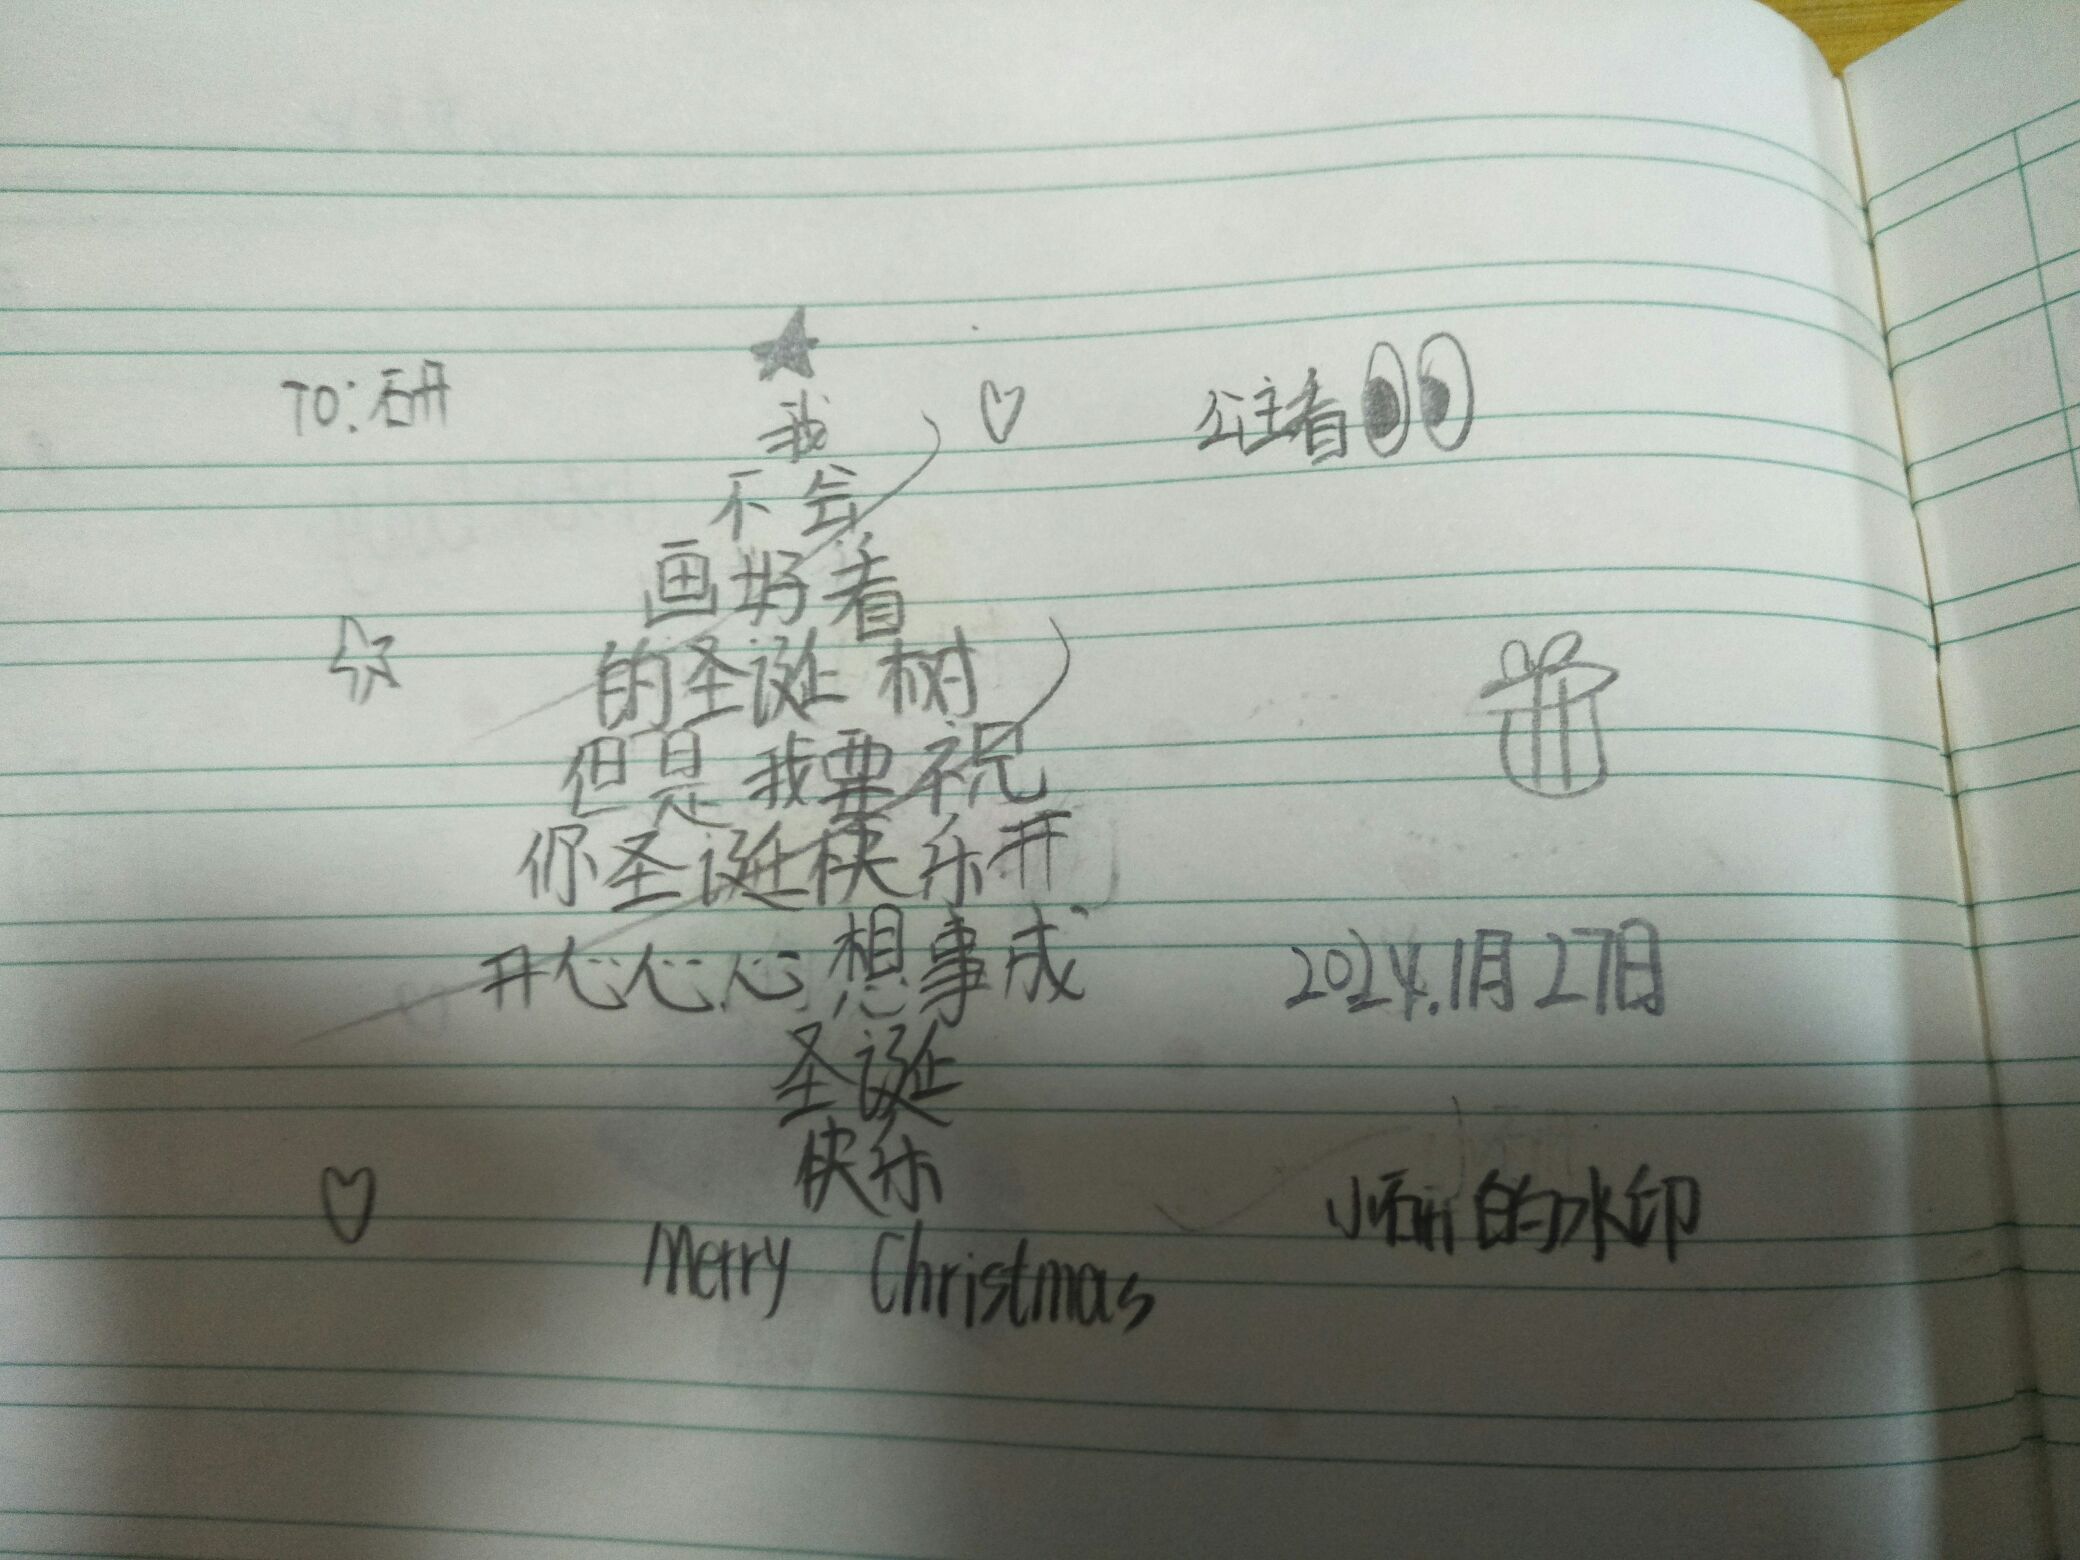 TO:研
公主看
我
不会
画好看
的圣诞树
但是我要祝
你圣诞快乐开
开心心心想事成
2024.1月27日
圣诞
快乐
小研的水印
Merry Christmas